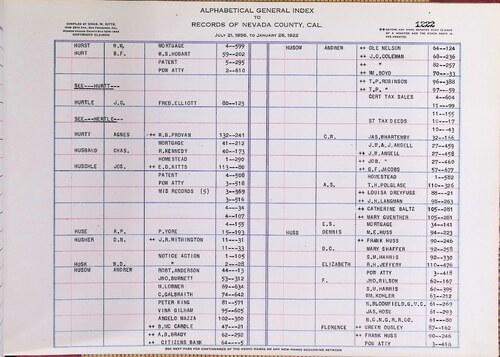 ALPHABETICAL GENERAL INDEX
TO
RECORDS OF NEVADA COUNTY, CAL.
JULY 21, 1856, TO JANUARY 26, 1922
1222
HURST
MORTGAGE 4—599
HURT B.F. W.S. HOBART 59—202
PATENT 5—295
POW ATTY 2—610
SEE---HURTT---
HURTLE J.G. FRED. ELLIOTT 80—123
SEE---HERTLE---
HURTY AGNES ++ W.G. PROVAN 132—241
MORTGAGE 41—212
HUSBAND CHAS. R. KENNEDY 40—173
HOMESTEAD 1—290
HUSCHLE JOS. ++ E.D. KITTS 113—80
PATENT 4—508
POW ATTY 3—518
MIS RECORDS (5) 3—369
3—516
4—34
4—107
4—155
HUSE A.P. P. YORE 15—193
HUSHER D.N. ++ J.R. WITHINGTON 11—31
11—33
NOTICE ACTION 1—105
HUSH R.D. " 2—28
HUSOW ANDREW ROBT. ANDERSON 44—13
JNO. BURNETT 53—312
H. LORNER 69—634
C. GALBRAITH 74—642
PETER KING 81—571
VINA GILHAM 95—605
ANGELO MAZZA 102—300
++ D. MC CARDLE 47—21
++ A.B. BRADY 62—252
++ CITIZENS BANK 64—5
HUSOW ANDREW ++ OLE NELSON 64—124
++ J.C. COLEMAN 68—236
++ " 82—257
++ WM. BOYD 70—33
++ T.P. ROBINSON 96—388
++ T.P. " 97—59
CERT TAX SALES 4—604
11—99
11—155
ST TAX DEEDS 11—17
10—43
C.R. JAS. WHARTENBY 32—166
J.W. & J. ANGELL 27—459
++ J.W. ANGELL 27—458
++ JOB. " 27—460
++ G.F. JACOBS 57—607
HOMESTEAD 1—582
A.S. T.H. POLGLASE 110—326
++ LOUISA DREYFUSS 88—21
++ J.H. LANGMAN 98—263
++ CATHERINE BALTZ 105—281
++ MARY GUENTHER 105—281
E.S. MORTGAGE 34—141
HUSS DENNIS M.E. HUSS 94—223
++ FRANK HUSS 90—246
D.C. MARY SHAFFER 92—258
S.W. HARRIS 92—330
ELIZABETH R.H. JEFFERY 110—426
POW ATTY 3—418
F. JNO. BILSON 62—167
S.W. HARRIS 60—395
WM. KOHLER 63—212
N. BLOOMFIELD.G.M.G. 61—269
JAS. HOSE 61—293
N.C.N.G.R.R.CO. 61—80
FLORENCE ++ GREEN OUSLEY 87—162
++ FRANK HUSS 90—246
POW ATTY 3—418